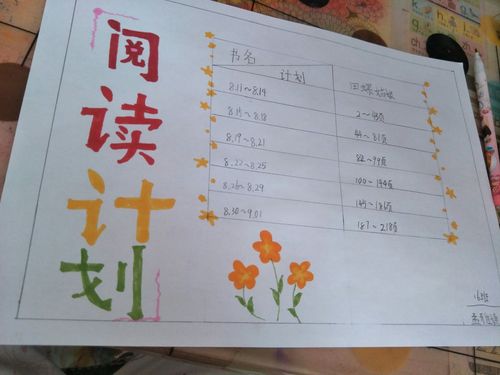 阅读计划
书名
计划 田螺姑娘
8.11~8.14 2~43页
8.15~8.18 44~81页
8.19~8.21 82~99页
8.22~8.25 100~144页
8.26~8.29 145~186页
8.30~9.01 187~218页